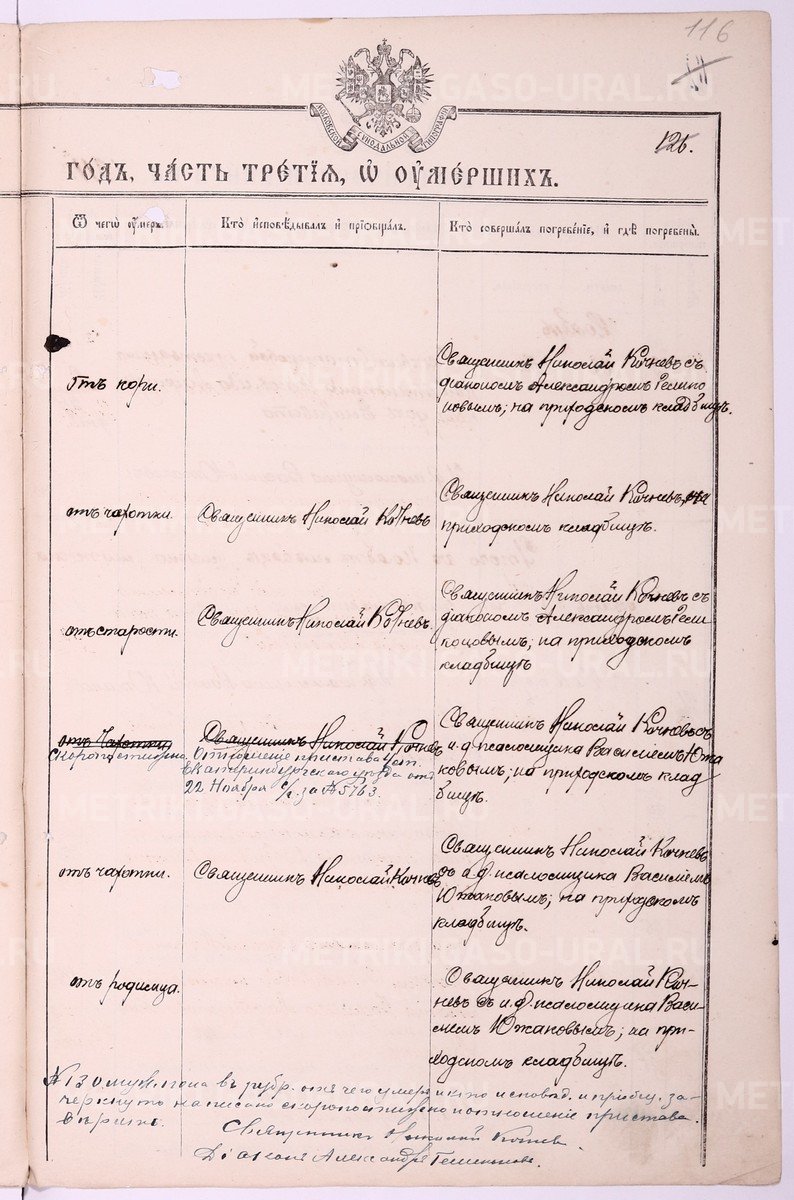 116
МОСКОВСКОЙ СѴНОДАЛЬНОЙ ТИПОГРАФІИ
126.
ГОДЪ, ЧАСТЬ ТРЕТІЯ, Ѿ ОУМЕРШИХЪ.
Ѿ чегѡ оумеръ.
Кто исповѣдывалъ и пріобщалъ.
Кто совершалъ погребеніе, и гдѣ погребены.
Отъ кори.
Священникъ Николай Кочневъ съ
діакономъ Александромъ
на приходскомъ кладбищѣ.
отъ чахотки.
Священникъ Николай Кочневъ
Священникъ Николай Кочневъ, на
приходскомъ кладбищѣ.
отъ старости.
Священникъ Николай Кочневъ.
Священникъ Николай Кочневъ съ
діакономъ Александромъ
на приходскомъ
кладбищѣ
отъ чахотки
Священникъ Николай Кочневъ
Скоропостижно.
Отношеніе пристава
Екатеринбургскаго уѣзда отъ
22 Ноября с/г. за № 5763.
Священникъ Николай Кочневъ съ
и. д. псаломщика Василіемъ Южа
ковымъ; на приходскомъ клад
бищѣ.
отъ чахотки.
Священникъ Николай Кочневъ
Священникъ Николай Кочневъ
съ и. д. псаломщика Василіемъ
Южаковымъ; на приходскомъ
кладбищѣ.
отъ родимца.
Священникъ Николай Коч-
невъ съ и. д. псаломщика Васи-
ліемъ Южаковымъ; на при-
ходскомъ кладбищѣ.
№ 13 муж. пола въ рубр. отъ чего умеръ и кто исповѣд. и пріобщ. за-
черкнуто написано скоропостижно и отношеніе пристава
вѣрно.
Священникъ Николай Кочнев
Діаконъ Александръ